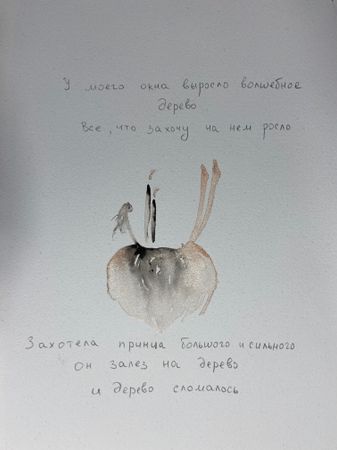 У моего окна выросло волшебное
дерево
Все, что захочу на нем росло
Захотела принца большого и сильного
Он залез на дерево
и дерево сломалось